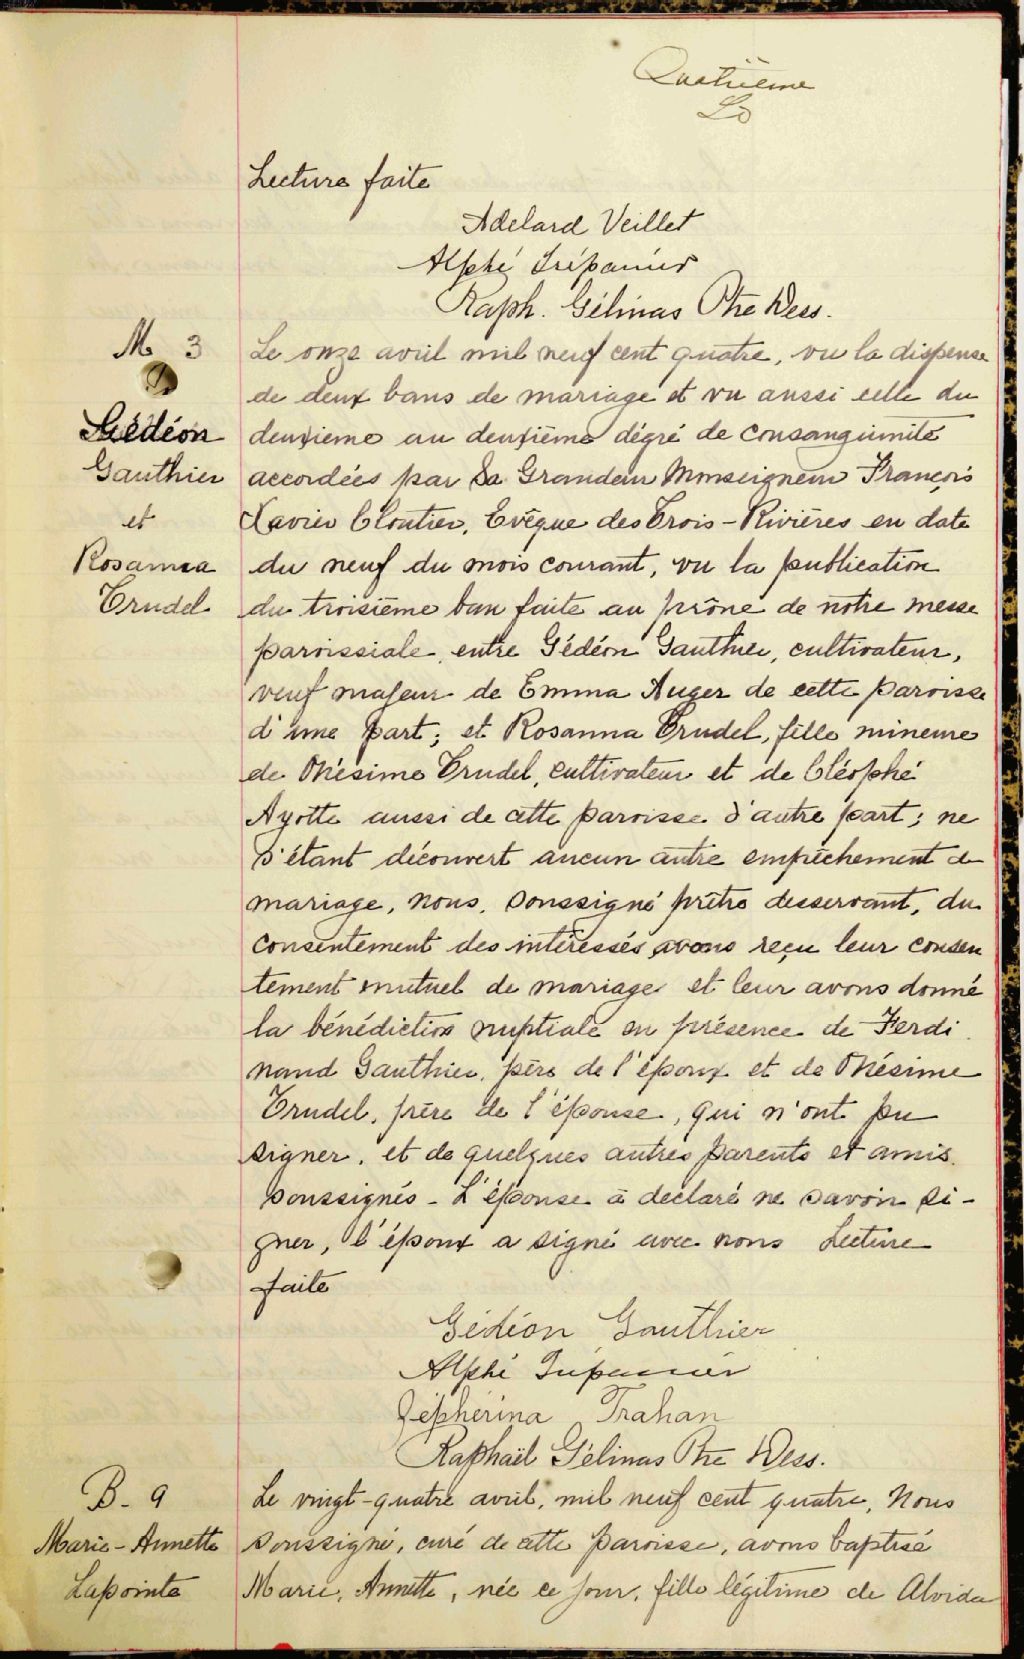 Quatrième
Lecture faite
Adelard Veillet
Alphé Trépanier
Raph. Gélinas Ptre Dess.
M 3
Gédéon
Gauthier
et
Rosanna
Trudel
Le onze avril mil neuf cent quatre, vu la dispense
de deux bans de mariage et vu aussi celle du
deuxieme au deuxième dégré de consanguinité
accordées par Sa Grandeur Monseigneur François
Xavier Cloutier, Evêque des Trois-Rivières en date
du neuf du mois courant, vu la publication
du troisième ban faite au prône de notre messe
paroissiale, entre Gédéon Gauthier, cultivateur,
veuf majeur de Emma Auger de cette paroisse
d'une part; et Rosanna Trudel, fille mineure
de Onésime Trudel, cultivateur et de Cléophé
Ayotte aussi de cette paroisse d'autre part; ne
s'étant découvert aucun autre empêchement de
mariage, nous, soussigné prêtre desservant, du
consentement des intéressés avons reçu leur consen
tement mutuel de mariage et leur avons donné
la bénédiction nuptiale en présence de Ferdi
nand Gauthier, père de l'époux et de Onésime
Trudel, père de l'épouse, qui n'ont pu
signer, et de quelques autres parents et amis
soussignés - L'épouse a déclaré ne savoir si-
gner, l'époux a signé avec nous Lecture
faite
Gédéon Gauthier
Alphé Trépanier
Zéphérina Trahan
Raphaël Gélinas Ptre Dess.
B - 9
Marie-Annette
Lapointe
Le vingt-quatre avril, mil neuf cent quatre, Nous
soussigné, curé de cette paroisse, avons baptisé
Marie, Annette, née ce jour, fille légitime de Alvida